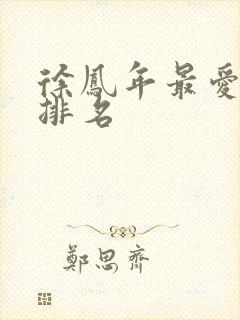 徐鳳年最愛
排名
鄭思齊